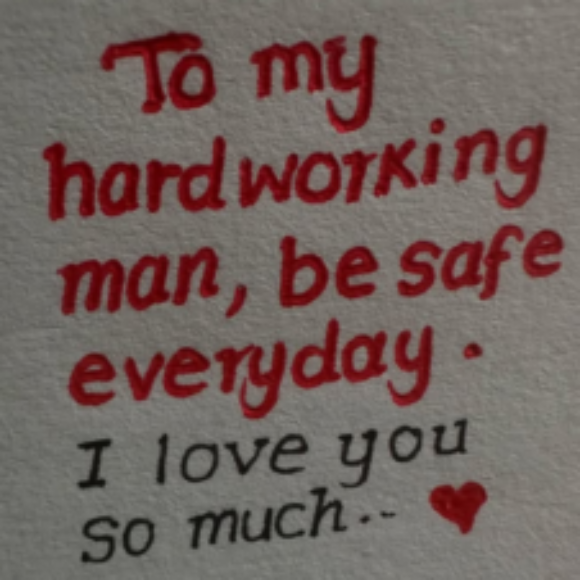 To my
hardworking
man, be safe
everyday.
I love you
so much... ♥